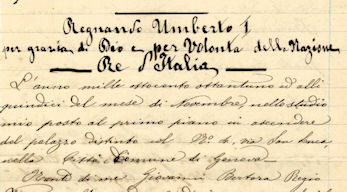 Regnando Umberto I
per grazia di Dio e per Volontà della Nazione
Re d'Italia
L'anno mille ottocento ottantuno ed alli
quindici del mese di Novembre, nello studio
mio posto al primo piano in ascendere
del palazzo distinto col N.º 4, via San Luca,
nella Città e Comune di Genova.
Avanti di me Giovanni Bertora Regio